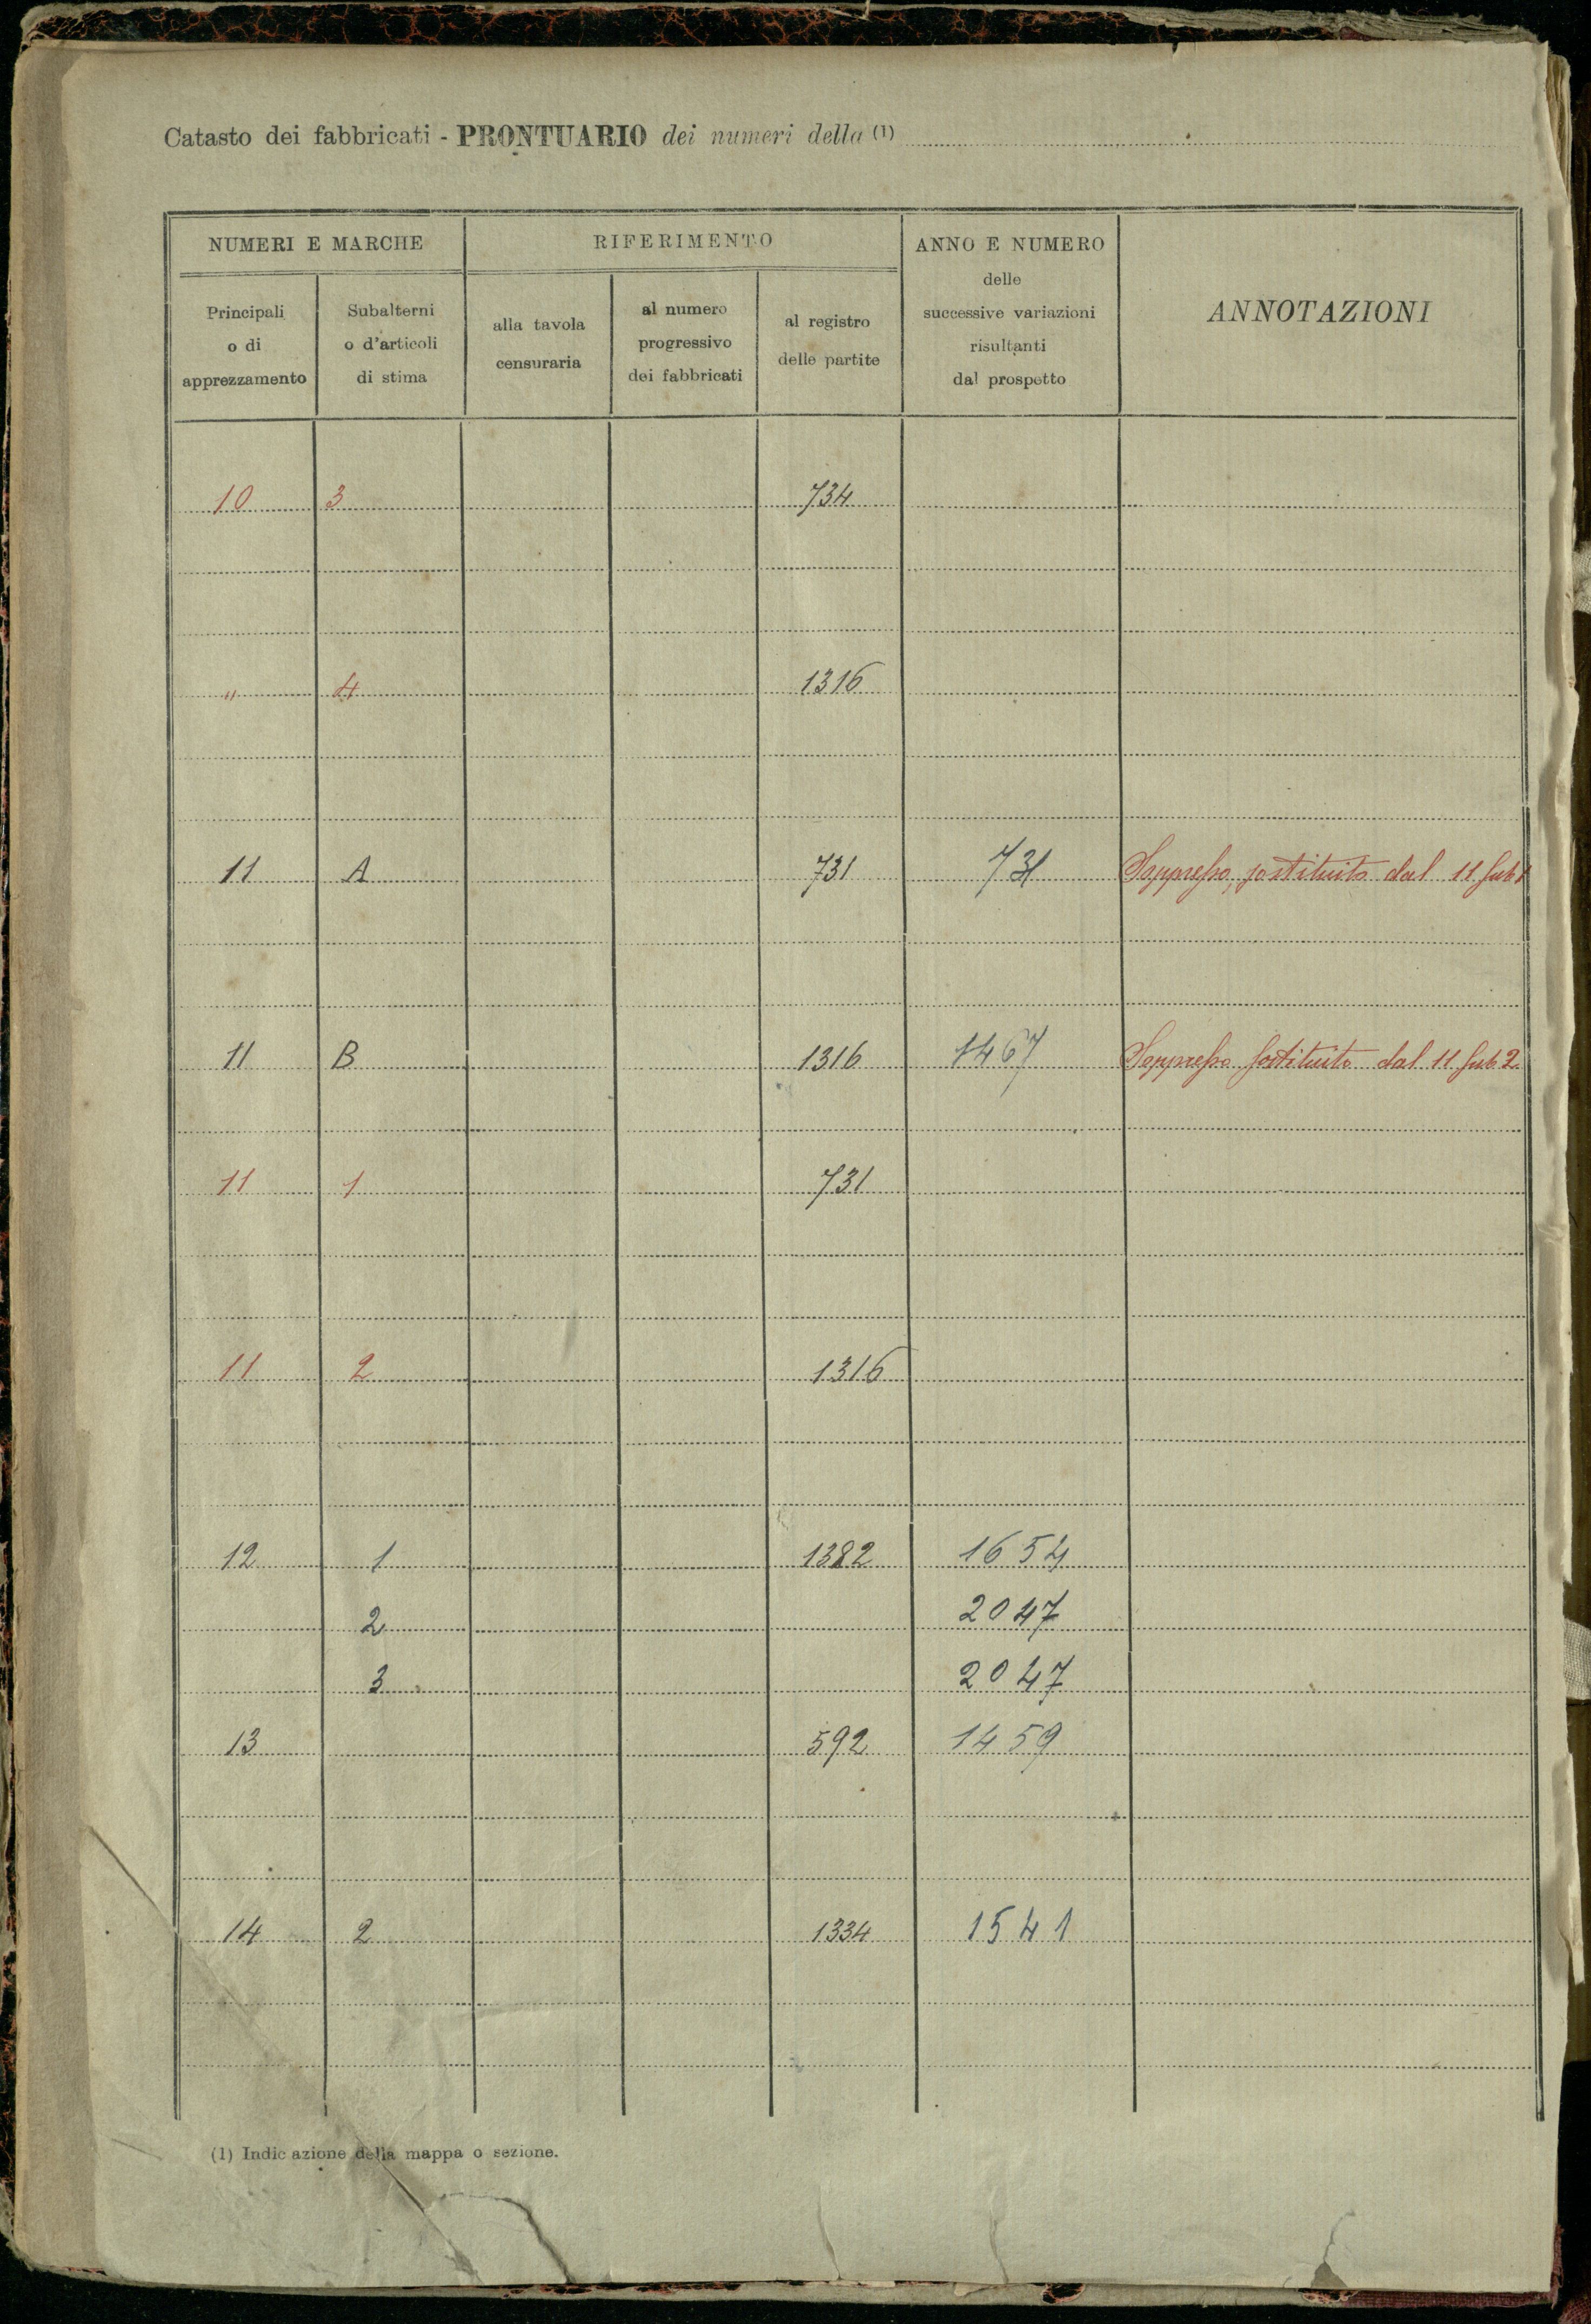 Catasto dei fabbricati - PRONTUARIO dei numeri della (1)
NUMERI E MARCHE
RIFERIMENTO
ANNO E NUMERO
delle
successive variazioni
risultanti
dal prospetto
ANNOTAZIONI
Principali
o di
apprezzamento
Subalterni
o d'articoli
di stima
alla tavola
censuraria
al numero
progressivo
dei fabbricati
al registro
delle partite
10 3 734
" 4 1316
11 A 731 731 Soppresso, sostituito dal 11 sub 1
11 B 1316 1467 Soppresso sostituito dal 11 sub 2
11 1 731
11 2 1316
12 1 1382 1654
2 2047
3 2047
13 592 1459
14 2 1334 1541
(1) Indicazione della mappa o sezione.